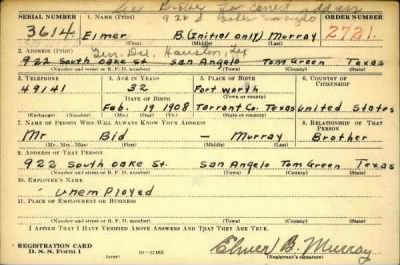 See Brother for correct address
SERIAL NUMBER 1. NAME (Print) 922 S ORDER NUMBER
3614 Elmer B.(Initial only) Murray 2721.
(First) (Middle) (Last)
2. ADDRESS (Print) Gen. Del. Houston, Tex
922 South oake st San Angelo Tom Green Texas
(Number and street or R. F. D. number) (Town) (County) (State)
3. TELEPHONE 4. AGE IN YEARS 5. PLACE OF BIRTH 6. COUNTRY OF CITIZENSHIP
49141 32 Fort worth
DATE OF BIRTH
Feb. 19 1908 Tarrant Co. Texas United States
(Exchange) (Number) (Mo.) (Day) (Yr.) (Town or county) (State or country)
7. NAME OF PERSON WHO WILL ALWAYS KNOW YOUR ADDRESS 8. RELATIONSHIP OF THAT PERSON
Mr Bid - Murray Brother
(Mr., Mrs., Miss) (First) (Middle) (Last)
9. ADDRESS OF THAT PERSON
922 South oake st. San Angelo Tom Green Texas
(Number and street or R. F. D. number) (Town) (County) (State)
10. EMPLOYER'S NAME
Unem Ployed
11. PLACE OF EMPLOYMENT OR BUSINESS
(Number and street or R. F. D. number) (Town) (County) (State)
I AFFIRM THAT I HAVE VERIFIED ABOVE ANSWERS AND THAT THEY ARE TRUE.
REGISTRATION CARD
D. S. S. Form 1 16-17105 Elmer B. Murray
(Registrant's signature)